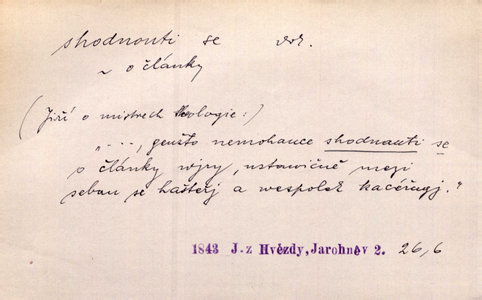 shodnouti se dok.
~ o články
(Jiří o mistrech theologie:)
„..., genžto nemohauce shodnauti se
o články wjry, ustawičně mezi
sebau se hašteřj a wespolek kacéřugj.“
1843 J. z Hvězdy, Jarohněv 2. 26,6